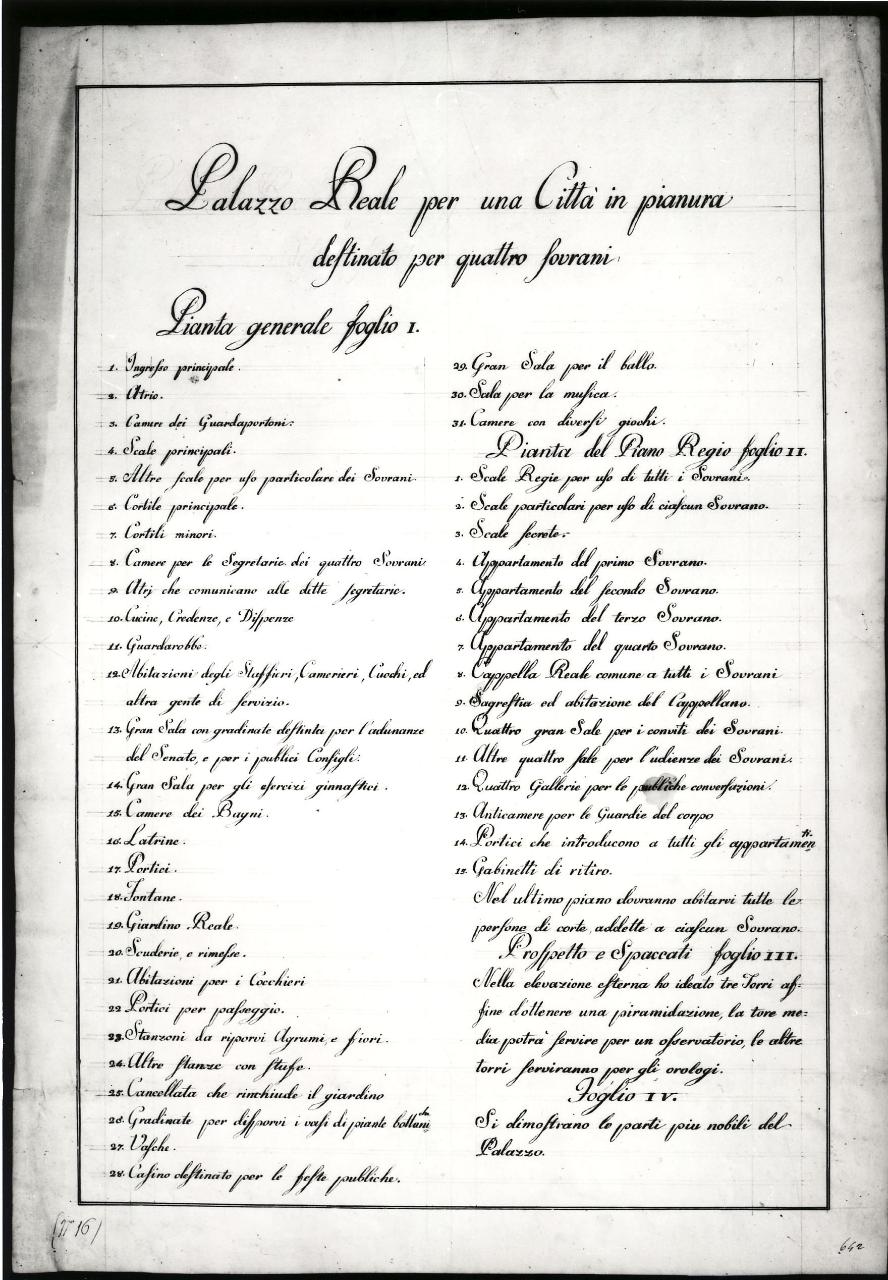 Palazzo Reale per una Città in pianura
deſtinato per quattro ſovrani.
Pianta generale foglio I.
1. Ingreſso principale.
2. Atrio.
3. Camere dei Guardaportoni.
4. Scale principali.
5. Altre ſcale per uſo particolare dei Sovrani.
6. Cortile principale.
7. Cortili minori.
8. Camere per le Segretarie dei quattro Sovrani
9. Atrj che comunicano alle ditte ſegretarie.
10. Cucine, Credenze, e Diſpenze
11. Guardarobbe.
12. Abitazioni degli Staffieri, Camerieri, Cuochi, ed
altra gente di ſervizio.
13. Gran Sala con gradinate deſtinta per l'adunanze
del Senato, e per i publici Conſigli.
14. Gran Sala per gli eſercizi ginnaſtici.
15. Camere dei Bagni.
16. Latrine.
17. Portici.
18. Fontane.
19. Giardino Reale.
20. Scuderie, e rimeſse.
21. Abitazioni per i Cocchieri
22. Portici per paſseggio.
23. Stanzoni da riporvi Agrumi, e fiori.
24. Altre ſtanze con ſtufe.
25. Cancellata che rinchiude il giardino
26. Gradinate per diſporvi i vaſi di piante bottani
27. Vaſche.
28. Caſino deſtinato per le feſte publiche.
29. Gran Sala per il ballo.
30. Sala per la muſica.
31. Camere con diverſi giochi.
Pianta del Piano Regio foglio II.
1. Scale Regie per uſo di tutti i Sovrani.
2. Scale particolari per uſo di ciaſcun Sovrano.
3. Scale ſecrete.
4. Appartamento del primo Sovrano.
5. Appartamento del ſecondo Sovrano.
6. Appartamento del terzo Sovrano.
7. Appartamento del quarto Sovrano.
8. Cappella Reale comune a tutti i Sovrani
9. Sagreſtia ed abitazione del Cappellano.
10. Quattro gran Sale per i conviti dei Sovrani.
11. Altre quattro ſale per l'udienze dei Sovrani.
12. Quattro Gallerie per le publiche converſazioni.
13. Anticamere per le Guardie del corpo
14. Portici che introducono a tutti gli appartamen ti.
15. Gabinetti di ritiro.
Nel ultimo piano dovranno abitarvi tutte le
perſone di corte, addette a ciaſcun Sovrano.
Proſpetto e Spaccati foglio III.
Nella elevazione eſterna ho ideato tre Torri af-
fine d'ottenere una piramidazione, la tore me-
dia potrà ſervire per un oſservatorio, le altre
torri ſerviranno per gli orologi.
Foglio IV.
Si dimoſtrano le parti piu nobili del
Palazzo.
(n° 16)
642